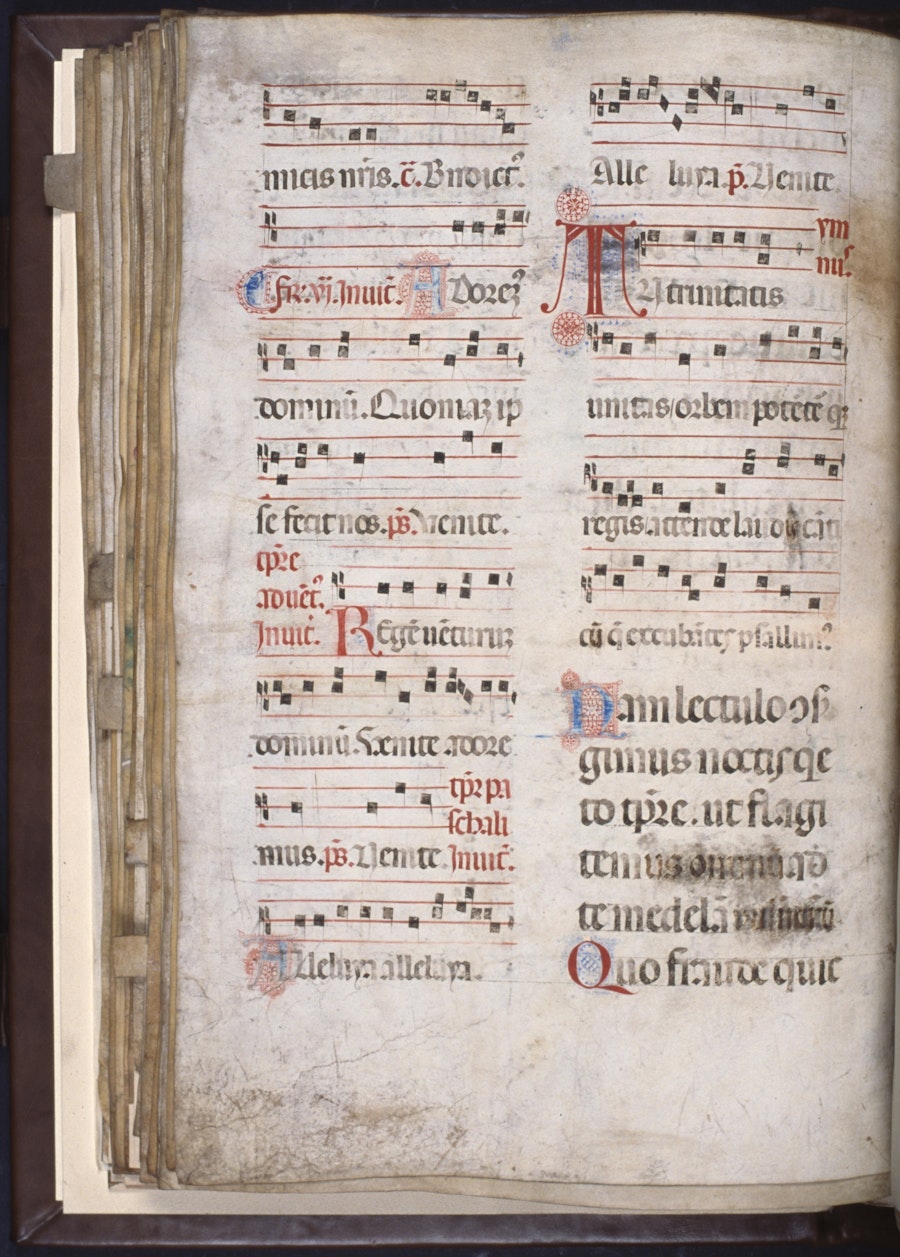 micis nr̄is. c̄. B̄ndict᷒.
Fr̄. vj. Jnuit̄. Adorem᷒
dominū. Quoniaʒ ip
se fecit nos. ps̄. Venite.
tp̄re
aduēt᷒.
Jnuit̄. Regē uēturuʒ
dominū. Venite adore
tp̄r pa
schali
mus. ps̄. Venite Jnuit̄.
Alleluya alleluya.
Alle luya. p̄. Venite
ym
nu᷒.
Tu trinitatis
unitas/orbem potēte q̄
regis. attende laudū cāti
cū q̄ excubātes psallim᷒.
Nam lectulo ↄsur
gimus noctis qe
to tp̄re. ut flagi
temus
te medelā
Quo fraude quic